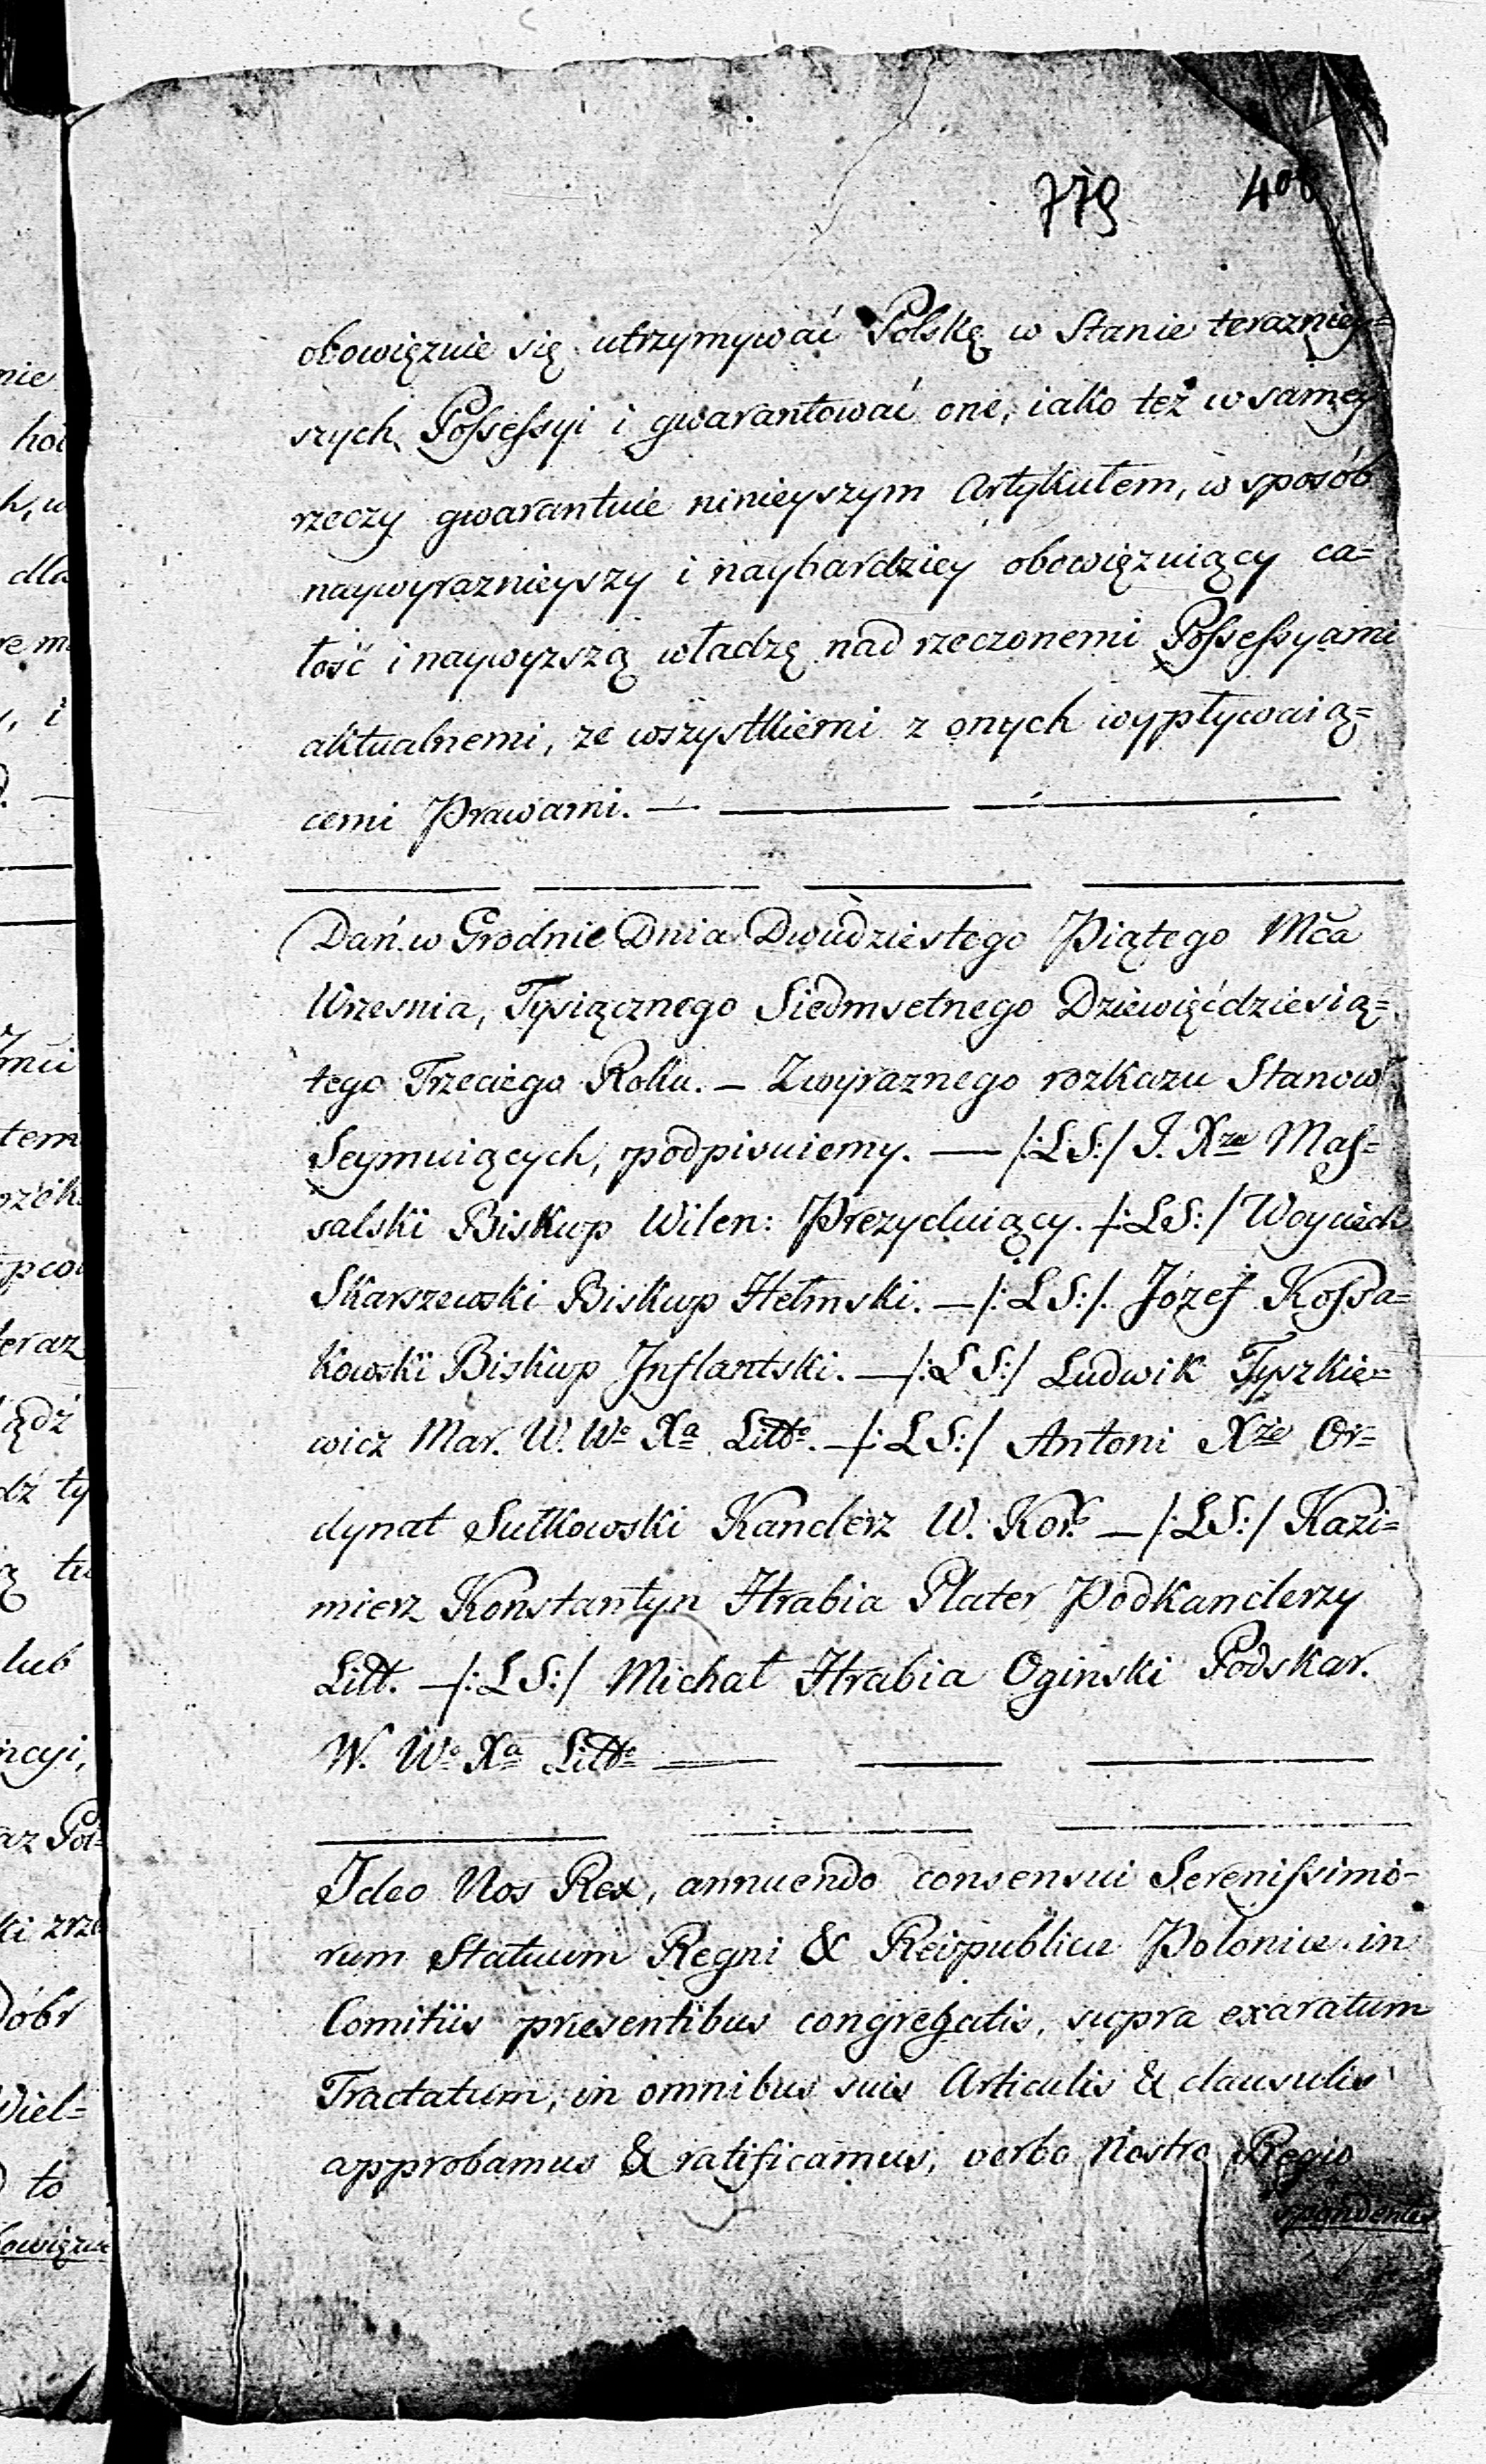 779 406
obowięzuie się utrzymywać Polskę w Stanie terazniey=
szych Possessyi i gwarantować one, iako też w samey
rzeczy gwarantuie ninieyszym Artykułem, w sposób
naywyraznieyszy i naybardziey obowięzuiący ca=
łość i naywyzszą władzę nad rzeczonemi Possessyami
aktualnemi, ze wszystkiemi z onych wypływaią=
cemi Prawami. —
Dań. w Grodnie Dnia Dwudziestego Piątego Mča
Wrzesnia, Tysiącznego Siedmsetnego Dziewięćdziesią=
tego Trzeciego Roku. — Z wyraznego rozkazu Stanow
Seymuiących, podpisuiemy. — /:LS:/ J. Xże Mas=
salski Biskup Wilen: Prezyduiący. /:LS:/ Woyciech
Skarszewski Biskup Hełmski. — /:LS:/. Józef Kossa=
kowski Biskup Inflantski. — /:LS:/ Ludwik Tyszkie=
wicz Mar. W. Wo Xa Litto. — /:LS:/ Antoni Xże Or=
dynat Sułkowski Kanclerz W. Kor. — /:LS:/ Kazi=
mierz Konstantyn Hrabia Plater Podkanclerzy
Litt. — /:LS:/ Michał Hrabia Oginski Podskar.
W. Wo Xa Litto
Ideo Nos Rex, annuendo consensui Serenissimo-
rum Statuum Regni & Reipublicæ Poloniæ in
Comitiis præsentibus congregatis, supra exaratum
Tractatum, in omnibus suis Articulis & clausulis
approbamus & ratificamus, verbo Nostro Regio
spondentes